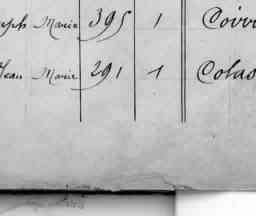 eph Marie 395 1 Coirr
Jean Marie 291 1 Colas